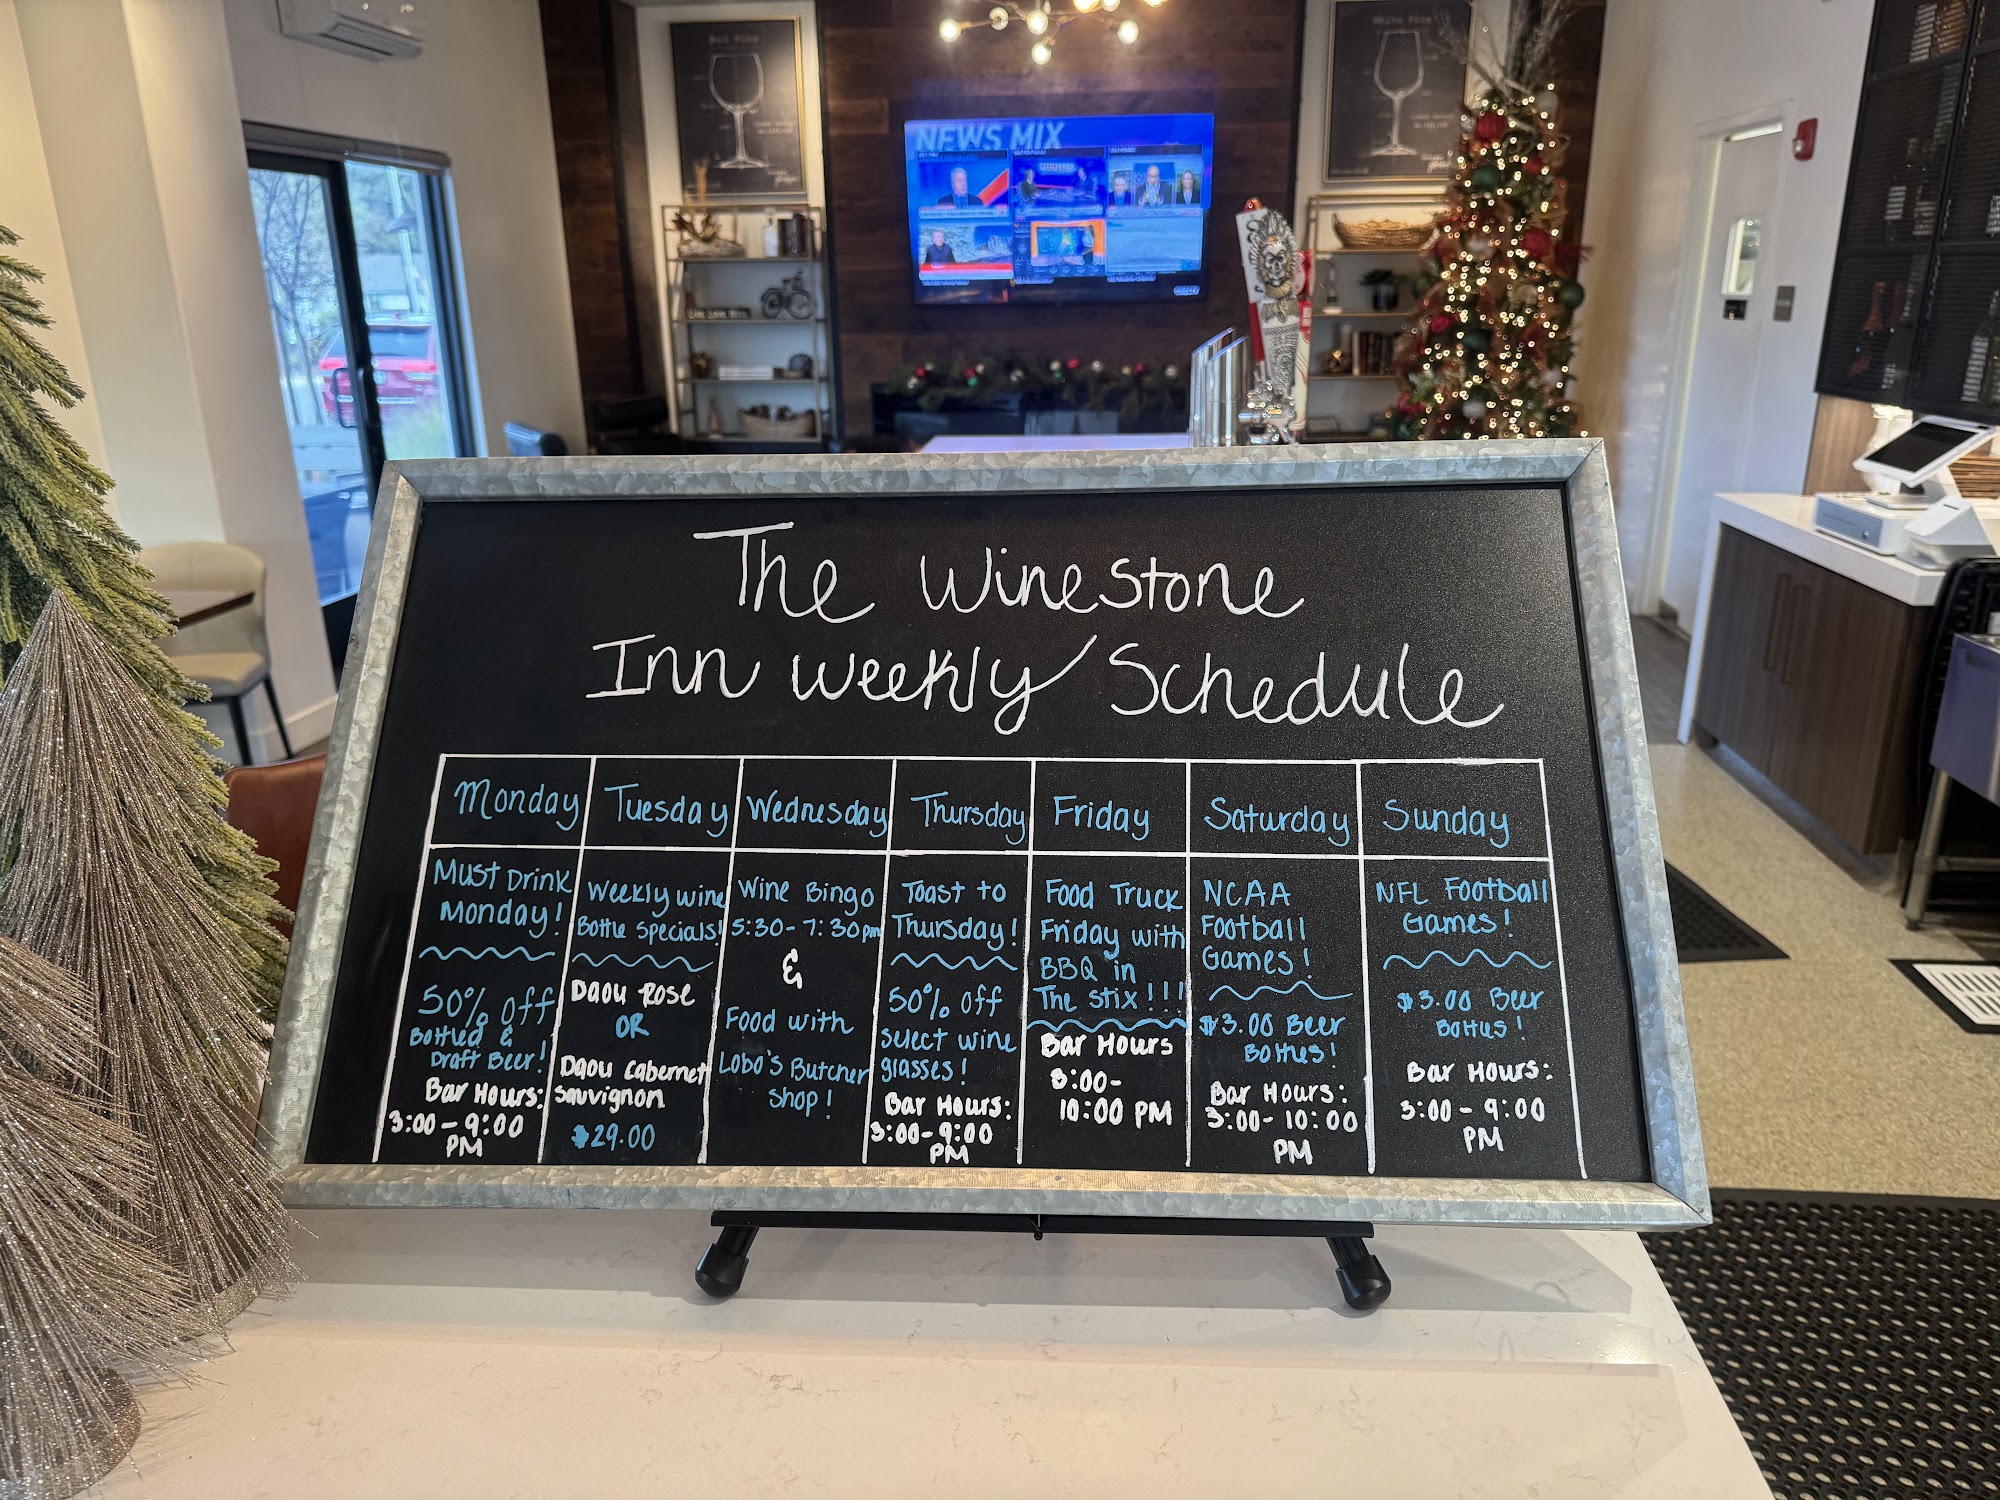 Red Wine
White Wine
NEWS MIX
Live Love Wine
The Winestone
Inn Weekly Schedule
Monday
Must Drink
Monday!
50% off
Bottled &
Draft Beer!
Bar Hours:
3:00-9:00
PM
Tuesday
Weekly wine
Bottle Specials!
Daou Rose
OR
Daou Cabernet
Sauvignon
$29.00
Wednesday
Wine Bingo
5:30-7:30pm
&
Food with
Lobo's Butcher
Shop!
Thursday
Toast to
Thursday!
50% off
select wine
glasses!
Bar Hours:
3:00-9:00
PM
Friday
Food Truck
Friday with
BBQ in
The Stix!!!
Bar Hours
3:00-
10:00 PM
Saturday
NCAA
Football
Games!
$3.00 Beer
Bottles!
Bar Hours:
3:00-10:00
PM
Sunday
NFL Football
Games!
$3.00 Beer
Bottles!
Bar Hours:
3:00-9:00
PM